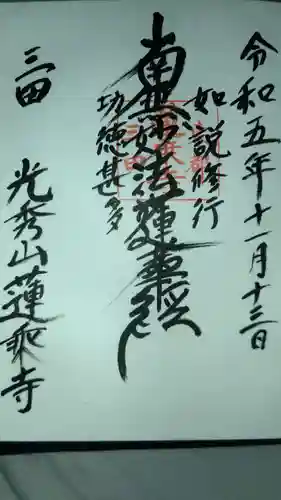 令和五年十一月十三日
如説修行
南無妙法蓮華経
功徳甚多
三田
光秀山蓮乘寺